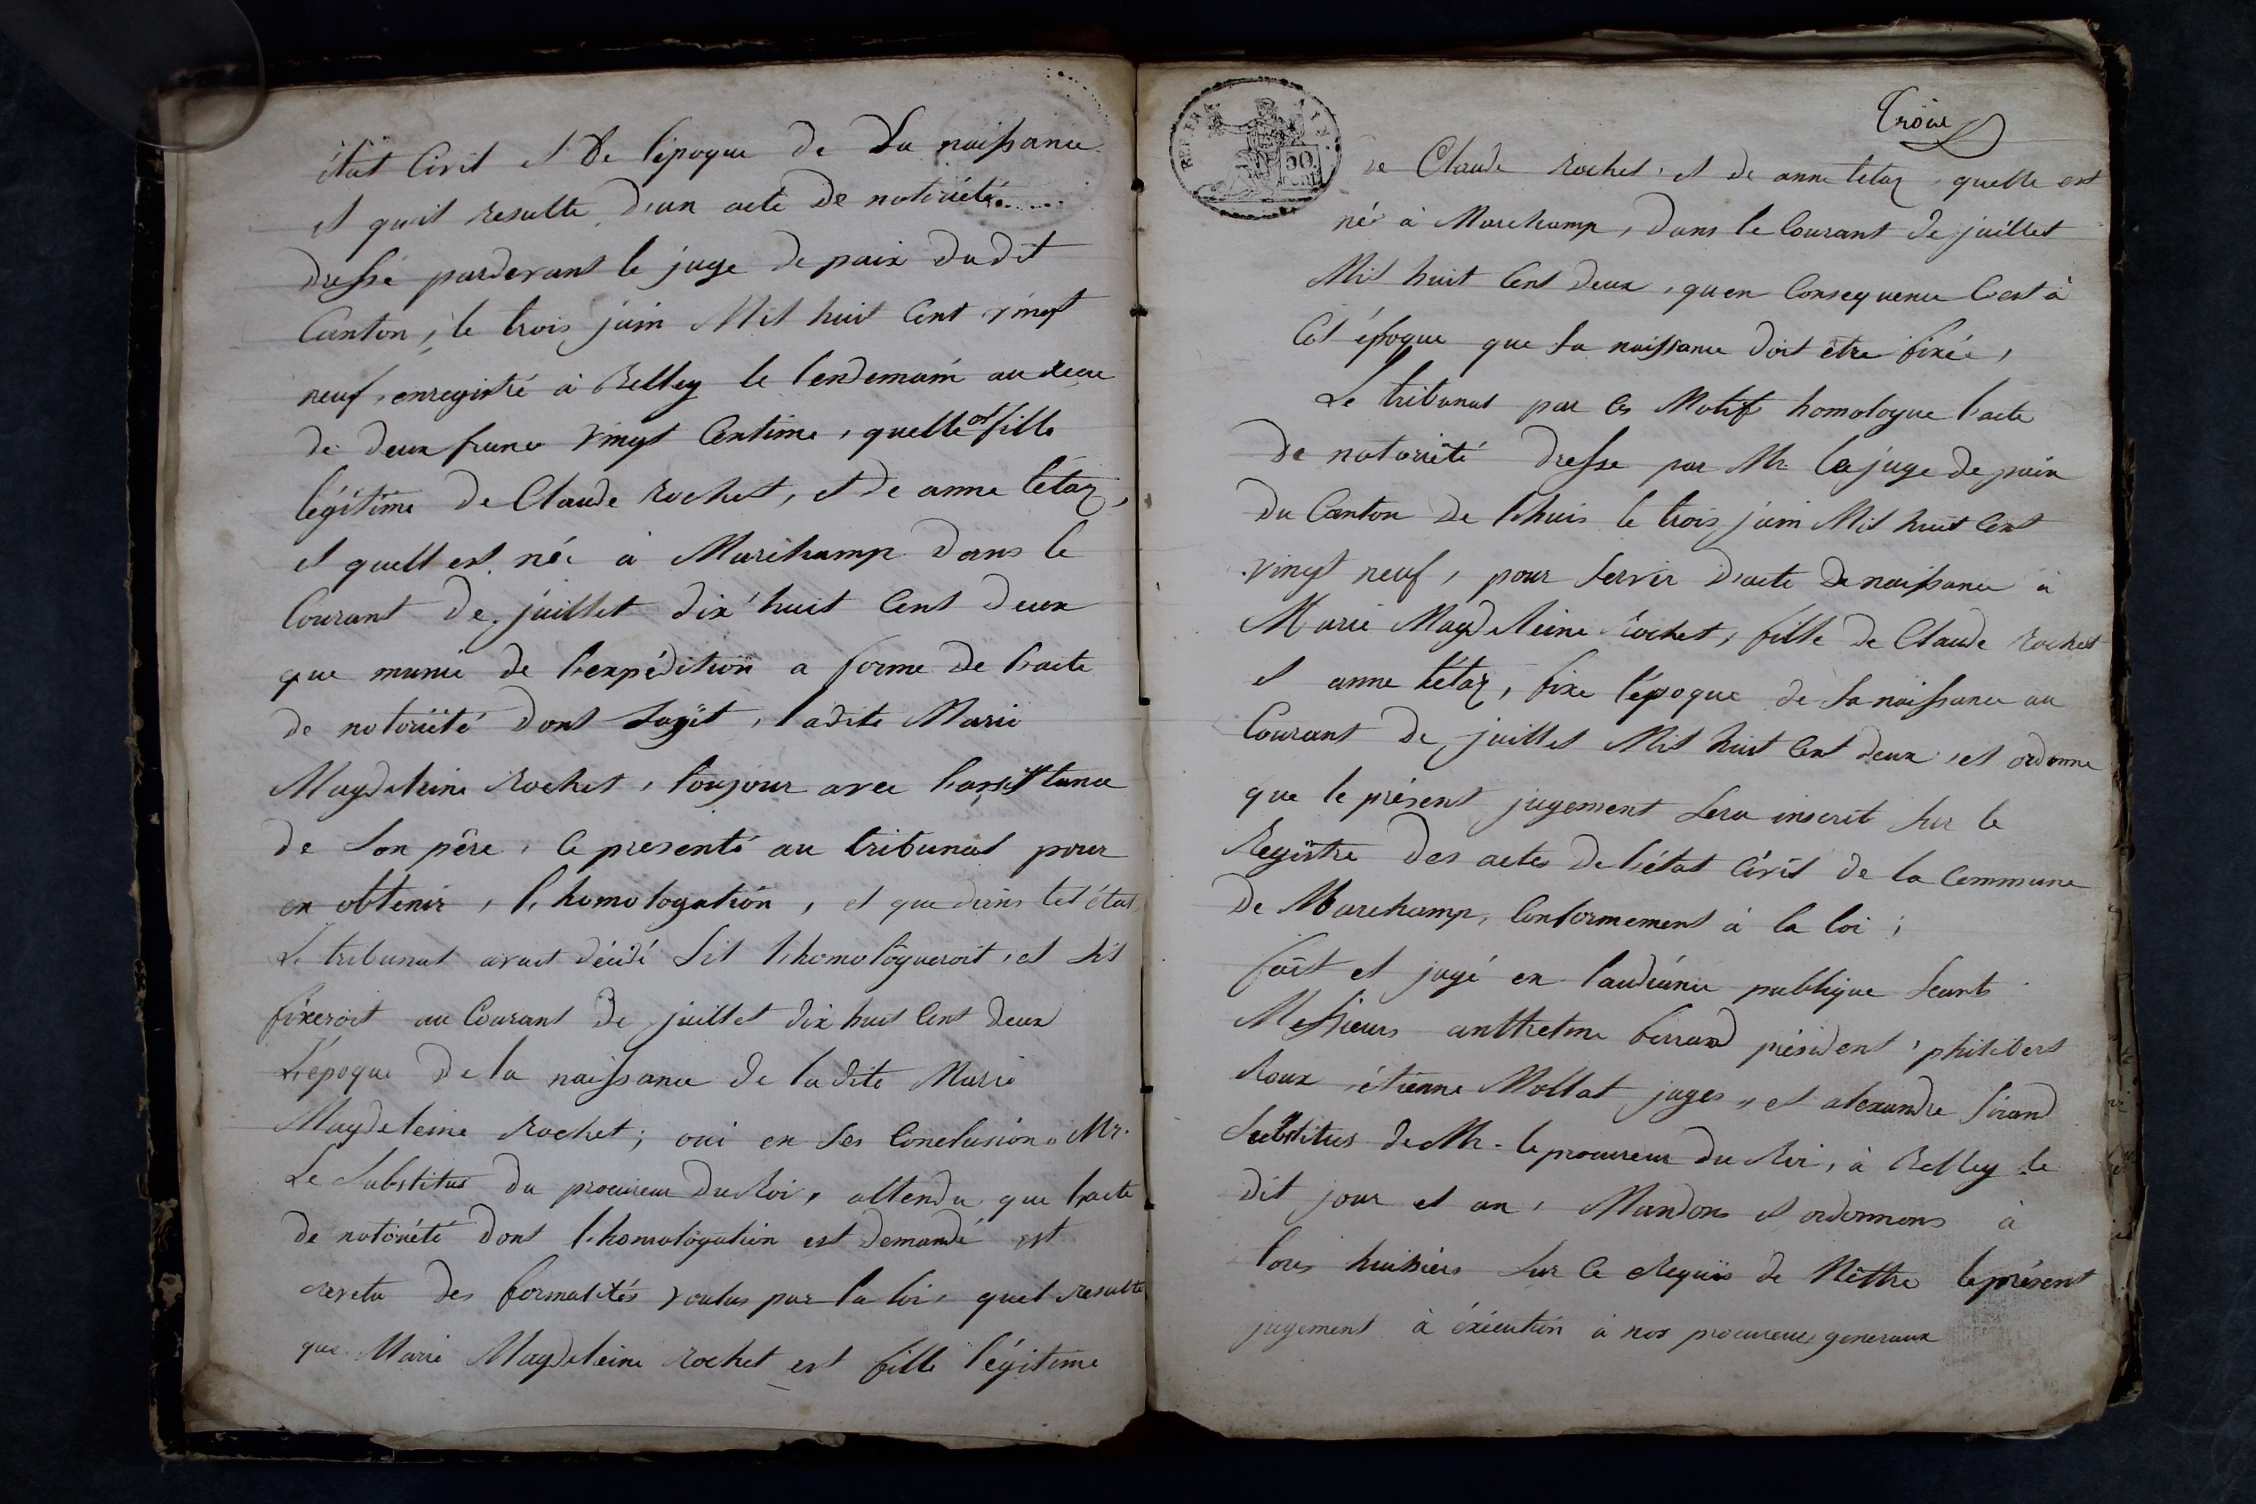 état Civil et de l'époque de Sa naissance
et qu'il resulte d'un acte de notoriété
dressé pardevant le juge de paix dudit
Canton, le trois juin Mil huit Cent vingt
neuf, enregistré à Belley le lendemain au recu
de deux franc vingt Centime, quelle est fille
légitime de Claude Rochet, et de anne tétaz,
et quell est né à Marchamp dans le
Courant de juillet dix huit Cent deux
que munie de l'expédition a forme de l'acte
de notoriété dont Sagit, ladite Marie
Magdeleine Rochet, toujour avec l'assistance
de Son père, Ce presenté au tribunal pour
en obtenir, l'homologation, et que dans Cet état
Le tribunal avait décidé Sil l'homologueroit, et Sil
fixeroit au Courant de juillet dix huit Cent deux
L'époque de la naissance de ladite Marie
Magdeleine Rochet; oui en Ses Conclusions Mr.
Le Substitus du procureur du Roi, attendu que l'acte
de notoriété dont l'homologation est demandé est
revetu des formalités voulus par la loi, quel resulte
que Marie Magdeleine Rochet est fille légitime
50
de Claude Rochet, et de anne tetaz quelle est
né à Marchamp, dans le Courant de juillet
Mil huit Cent deux, quen Consequence C'est à
Cet époque que Sa naissance doit être fixée,
Le tribunal par Ces Motifs homologue l'acte
de notoriété dresse par Mr. Le juge de paix
du Canton de Lhuis le trois juin Mil huit Cent
vingt neuf, pour Servir d'acte de naissance à
Marie Magdeleine Rochet, fille de Claude Rochet
et anne tétaz, fixe l'époque de Sa naissance au
Courant de juillet Mil huit Cent deux, et ordonne
que le présent jugement Sera inscrit Sur le
Registre des actes de l'état Civil de la Commune
De Marchamp, Conformement à la loi;
fait et jugé en l'audience publique Seants
Messieurs anthelme ferrand président, philibert
Roux, étienne Mollat juges, et alexandre Sirand
Substitus de Mr. le procureur du Roi, à Belley le
dit jour et an, Mandons et ordonnons à
tous huissiers Sur Ce Requis de Mettre le présent
jugement à éxécution à nos procureurs generaux